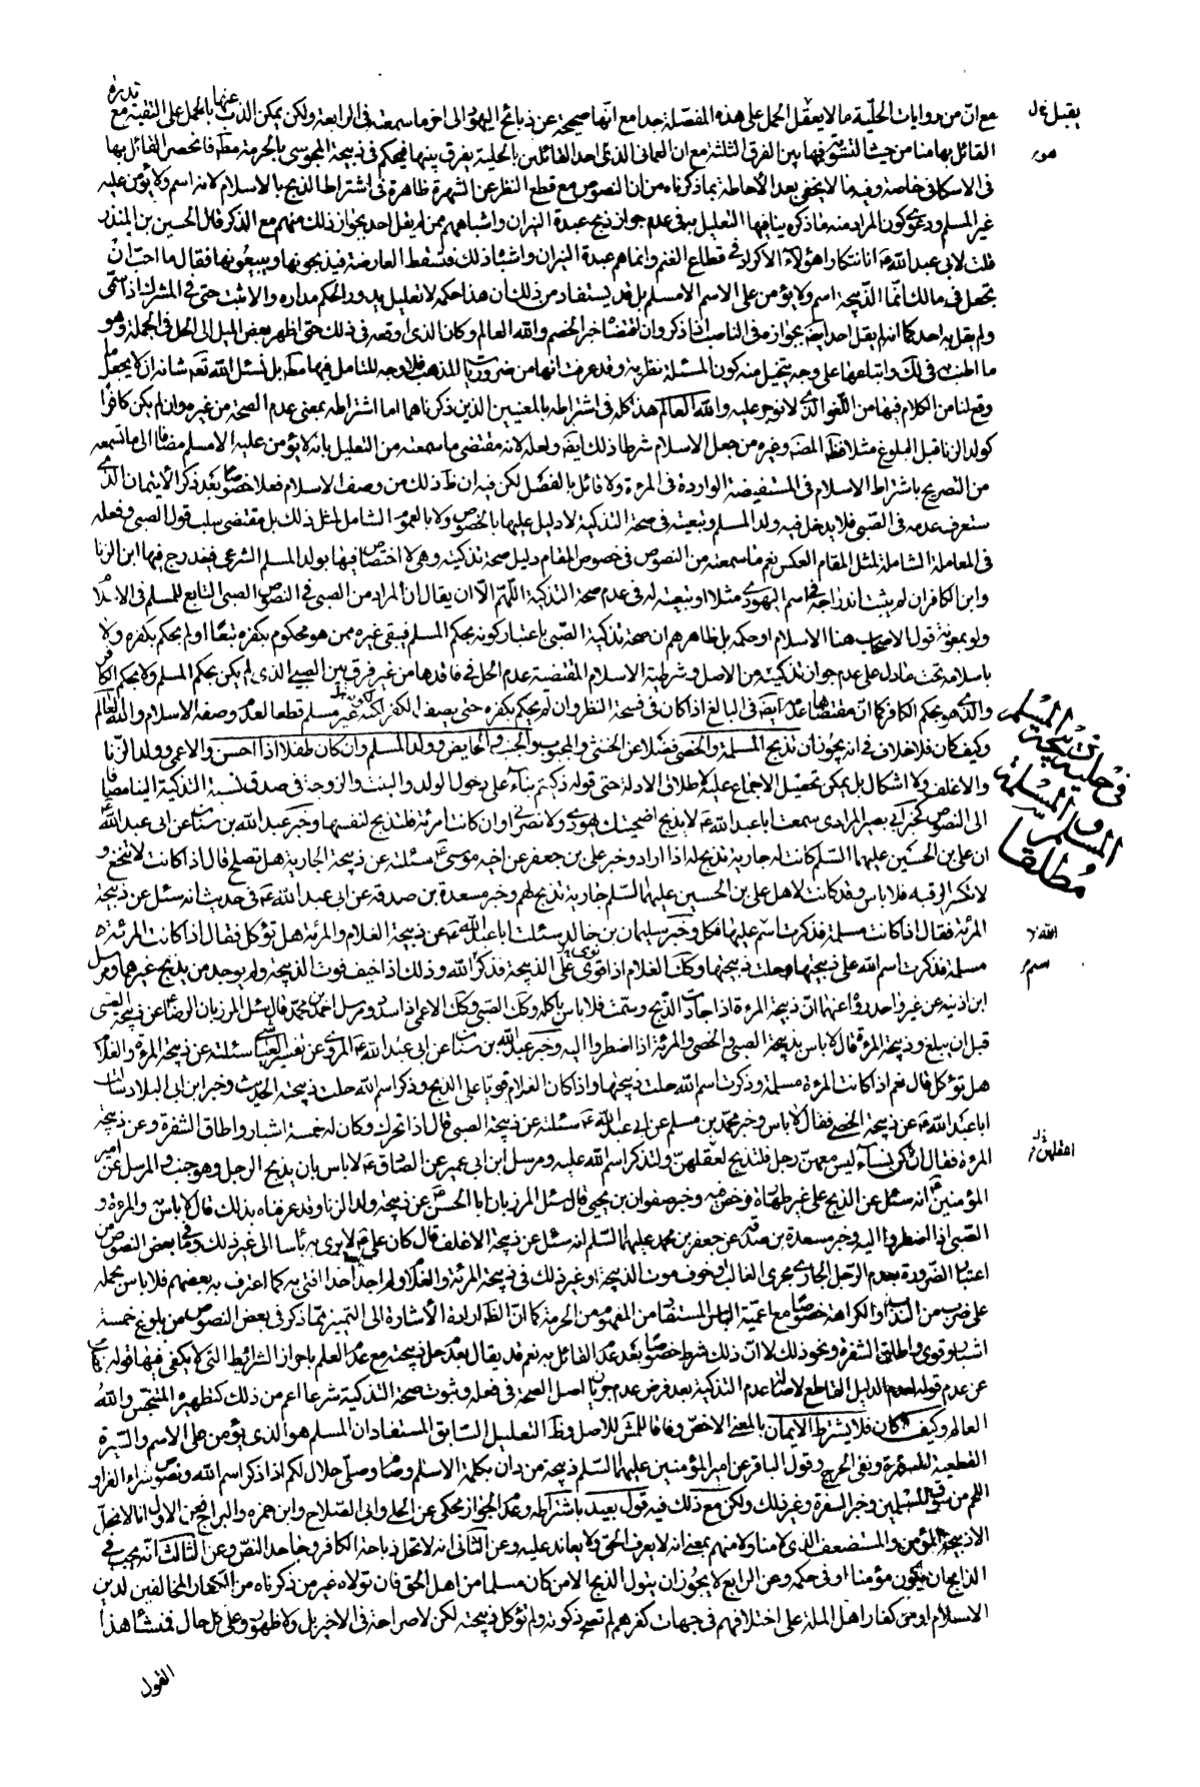 مع انّ من روايات الحلّية ما لا يعقل الحمل على هذه المفصّلة جدا مع انّها صحيحة عن ذبائح اليهود الى اخر ما سمعته فى الرابعة ولكن يمكن الذب عنها بالحمل على التقية مع ندرة
القائل بها منا من حيث التسوية فيها بين الفرق الثلثة مع ان العمانى الذى احد القائلين بالحلية يفرق بينها فيحكم فى ذبيحة المجوسى بالحرمة مطلقا فانحصر القائل بها
فى الاسكافى خاصة وفيه ما لا يخفى بعد الاحاطة بما ذكرناه من ان النصوص مع قطع النظر عن الشهرة ظاهرة فى اشتراط الذبح بالاسلام لانه اسم ولا يؤمن عليه
غير المسلم ودعوى كون المراد منه ما ذكره ينافيها التعليل به فى عدم جواز ذبح عبدة النيران واشباههم ممن لم يقل احد بجواز ذلك منهم مع الذكر قال الحسين بن المنذر
قلت لابى عبد الله ع انا نتكارى هؤلاء الاكراد فى قطاع الغنم وانما هم عبدة النيران واشباه ذلك فتسقط العارضة فيذبحونها ويبيعونها فقال ما احب ان
تجعل فى مالك انّما الذبيحة اسم ولا يؤمن على الاسم الا مسلم بل قد يستفاد من ذلك ان هذا حكمه لا تعليل يدور الحكم مداره والا لثبت حتى فى المشرك اذا سمّى
ولم يقل به احد كما انه لم يقل احد ايضا بجوازه فى الناصب اذا ذكر وان اقتضاه خبر الخصم والله العالم وكان الذى اوقعه فى ذلك حتى اظهر بعض الميل الى الحل فى الجملة وهو
ما اطنب فى لك واتباعها على وجه يتخيل منه كون المسئلة نظرية وقد عرفت انها من ضروريات المذهب فلا وجه للتامل فيها مطلقا بل نسئل الله تعه شانه ان لا يجعل ما
وقع لنا من الكلام فيها من اللّغو الذى لا نوجر عليه والله العالم هذا كله فى اشتراطه بالمعنيين الذين ذكرناهما اما اشتراطه بمعنى عدم الصحة من غيره وان لم يكن كافرا
كولد الزنا قبل البلوغ مثلا فظ المصنف وغيره من جعل الاسلام شرطا ذلك ايضا ولعله لانه مقتضى ما سمعته من التعليل بانه لا يؤمن عليه الا مسلم مضافا الى ما تسمعه
من التصريح باشتراط الاسلام فى المستفيضة الواردة فى المرءة ولا قائل بالفصل لكن فيه ان ظ ذلك من وصف الاسلام فعلا خصوصا بعد ذكر الايتمان الذى
ستعرف عدمه فى الصّبى فلا يدخل فيه ولد المسلم وتبعيته فى صحة التذكية لا دليل عليها بالخصوص ولا بالعموم الشامل لمثل ذلك بل مقتضى سلب قول الصبى وفعله
فى المعاملة الشاملة لمثل المقام العكس نعم ما سمعته من النصوص فى خصوص المقام دليل صحة تذكيته وهى لا اختصاص فيها بولد المسلم الشرعى فيندرج فيها ابن الزنا
وابن الكافر ان لم يثبت اندراجه فى اسم اليهودى مثلا او تبعيته له فى عدم صحة التذكية اللّهم الّا ان يقال ان المراد من الصبى فى النصوص الصبى التابع للمسلم فى الاسلام
ولو بمعونة قول الاصحاب هنا الاسلام او حكمه بل ظاهرهم ان صحة تذكية الصّبى باعتبار كونه بحكم المسلم فيبقى غيره ممن هو محكوم بكفره تبعا او لم يحكم بكفره ولا
باسلامه تحت ما دل على عدم جواز تذكيته من الاصل وشرطية الاسلام المقتضية عدم الحل فى فاقدها من غير فرق بين الصبى الذى لم يكن بحكم المسلم ولا بحكم الكافر
والذى هو بحكم الكافر كما انّ مقتضاها عدمه ايضا فى البالغ اذا كان فى فسحة النظر وان لم يحكم بكفره حتى يصف الكفر لكنه غير مسلم قطعا لعدم وصفه الاسلام والله العالم
وكيف كان فلا خلاف فى انه يجوز ان تذبح المسلمة والخصى فضلا عن الخنثى والمجبوب والجنب والحايض وولد المسلم وان كان طفلا اذا احسن والاعمى وولد الزّنا
والاغلف ولا اشكال بل يمكن تحصيل الاجماع عليه لاطلاق الادلة حتى قوله ذكيتم بناء على دخول الولد والبنت والزوجة فى صدق نسبة التذكية الينا مضافا
الى النصوص كخبر ابى بصير المرادى سمعت ابا عبد الله ع لا يذبح اضحيتك يهودى ولا نصرانى وان كانت امرئة فلتذبح لنفسها وخبر عبد الله بن سنان عن ابى عبد الله ع
ان على بن الحسين عليهما السّلم كانت له جارية تذبح له اذا اراد وخبر على بن جعفر عن اخيه موسى ع سئلته عن ذبيحة الجارية هل تصلح قال اذا كانت لا تنخع و
لا تكسر الرقبة فلا باس وقد كانت لاهل على بن الحسين عليهما السّلم جارية تذبح لهم وخبر مسعدة بن صدقة عن ابى عبد الله ع فى حديث انه سئل عن ذبيحة
المرئة فقال اذا كانت مسلمة فذكرت اسم عليها فكل وخبر سليمان بن خالد سئلت ابا عبد الله ع عن ذبيحة الغلام والمرئة هل تؤكل فقال اذا كانت المرئة
مسلمة فذكرت اسم الله على ذبيحتها حلت ذبيحتها وكك الغلام اذا قوى على الذبيحة فذكر الله وذلك اذا خيف فوت الذبيحة ولم يوجد من يذبح غيرهما ومرسل
ابن اذينة عن غير واحد رواه عنهما انّ ذبيحة المرءة اذا اجادت الذّبح وسمّت فلا باس باكله وكك الصّبى وكك الاعمى اذا سدد ومرسل احمد بن محمد قال سئل المرزبان الرضا ع عن ذبيحة الصّبى
قبل ان يبلغ وذبيحة المرءة قال لا باس بذبيحة الصبى والخصى والمرئة اذا اضطروا اليه وخبر عبد الله بن سنان عن ابى عبد الله ع المروى عن تفسير العياشى سئلته عن ذبيحة المرءة والغلام
هل تؤكل قال نعم اذا كانت المرءة مسلمة وذكرت اسم الله حلت ذبيحتها واذا كان الغلام قويّا على الذبح وذكر اسم الله حلت ذبيحته الحديث وخبر ابن ابى البلاد سئلت
ابا عبد الله ع عن ذبيحة الخصى فقال لا باس وخبر محمّد بن مسلم عن ابى عبد الله ع سئلته عن ذبيحة الصبى قال اذا تحرك وكان له خمسة اشبار واطاق الشفرة وعن ذبيحة
المرءة فقال ان كن نساء ليس معهنّ رجل فلتذبح لعقلهنّ ولتذكر اسم الله عليه ومرسل ابن ابى عمير عن الصادق ع لا باس بان يذبح الرجل وهو جنب والمرسل عن امير
المؤمنين ع انه سئل عن الذبح على غير طهارة فرخص فيه وخبر صفوان بن يحيى قال سئل المرزبان ابا الحسن ع عن ذبيحة ولد الزنا وقد عرفناه بذلك قال لا باس به والمرءة و
الصّبى اذا اضطروا اليه وخبر مسعدة بن صدقة عن جعفر بن محمد عليهما السّلم انه سئل عن ذبيحة الاغلف قال كان على ع لا يرى به بأسا الى غير ذلك وما فى بعض النصوص من
اعتبار الضّرورة بعدم الرّجل الجارى مجرى الغالب وخوف موت الذبيحة او غير ذلك فى ذبيحة المرئة والغلام لم اجد احدا افتى به كما اعترف به بعضهم فلا باس بحمله
على ضرب من الندب او الكراهة خصوصا مع اعمّية الباس المستفاد من المفهوم من الحرمة كما انّ الظ ارادة الاشارة الى التميز ممّا ذكر فى بعض النصوص من بلوغ خمسة
اشبار وقوى واطاق الشفرة ونحو ذلك لا انّ ذلك شرط خصوصا بعد عدم القائل به نعم قد يقال بعدم حل ذبيحته مع عدم العلم باحراز الشرائط التى لا يكفى فيها قوله
عن عدم قوله لعدم الدليل القاطع لاصالة عدم التذكية بعد فرض عدم جريان اصل الصحة فى فعله وثبوت صحة التذكية شرعا اعم من ذلك كتطهيره المتنجس والله
العالم وكيف كان فلا يشترط الايمان بالمعنى الاخصّ وفاقا للمشهور للاصل وظ التعليل السّابق المستفاد ان المسلم هو الذى يؤمن على الاسم والسّيرة
القطعية المستمرة ونفى الحرج وقول الباقر عن امير المؤمنين عليهما السّلم ذبيحة من دان بكلمة الاسلام وصام وصلّى حلال لكم اذا ذكر اسم الله ونصوص شراء الفراء و
اللحم من سوق المسلمين وخبر السفرة وغير ذلك ولكن مع ذلك فيه قول بعيد باشتراطه وعدم الجواز محكى عن الحلى وابى الصّلاح وابن حمزة والبراج فعن الاول انا لا نحلّ
الا ذبيحة المؤمن والمستضعف الذى لا منا ولا منهم بمعنى انه لا يعرف الحق ولا يعاند عليه وعن الثانى انه لا تحل ذباحة الكافر وجاحد النصّ وعن الثالث انّه يجب فى
الذابح ان يكون مؤمنا او فى حكمه وعن الرابع لا يجوز ان يتولى الذبح الا من كان مسلما من اهل الحق فان تولاه غير من ذكرناه من الكفار المخالفين لدين
الاسلام او من كفار اهل الملة على اختلافهم فى جهات كفرهم لم تصح ذكوته ولم تؤكل ذبيحته لكن لا صراحة فى الاخير بل ولا ظهور وعلى كل حال فمنشأ هذا
القول
يقبل خ ل
فى حلية ذبيحة المسلم والمسلمة مطلقا
الله
اعقلهن